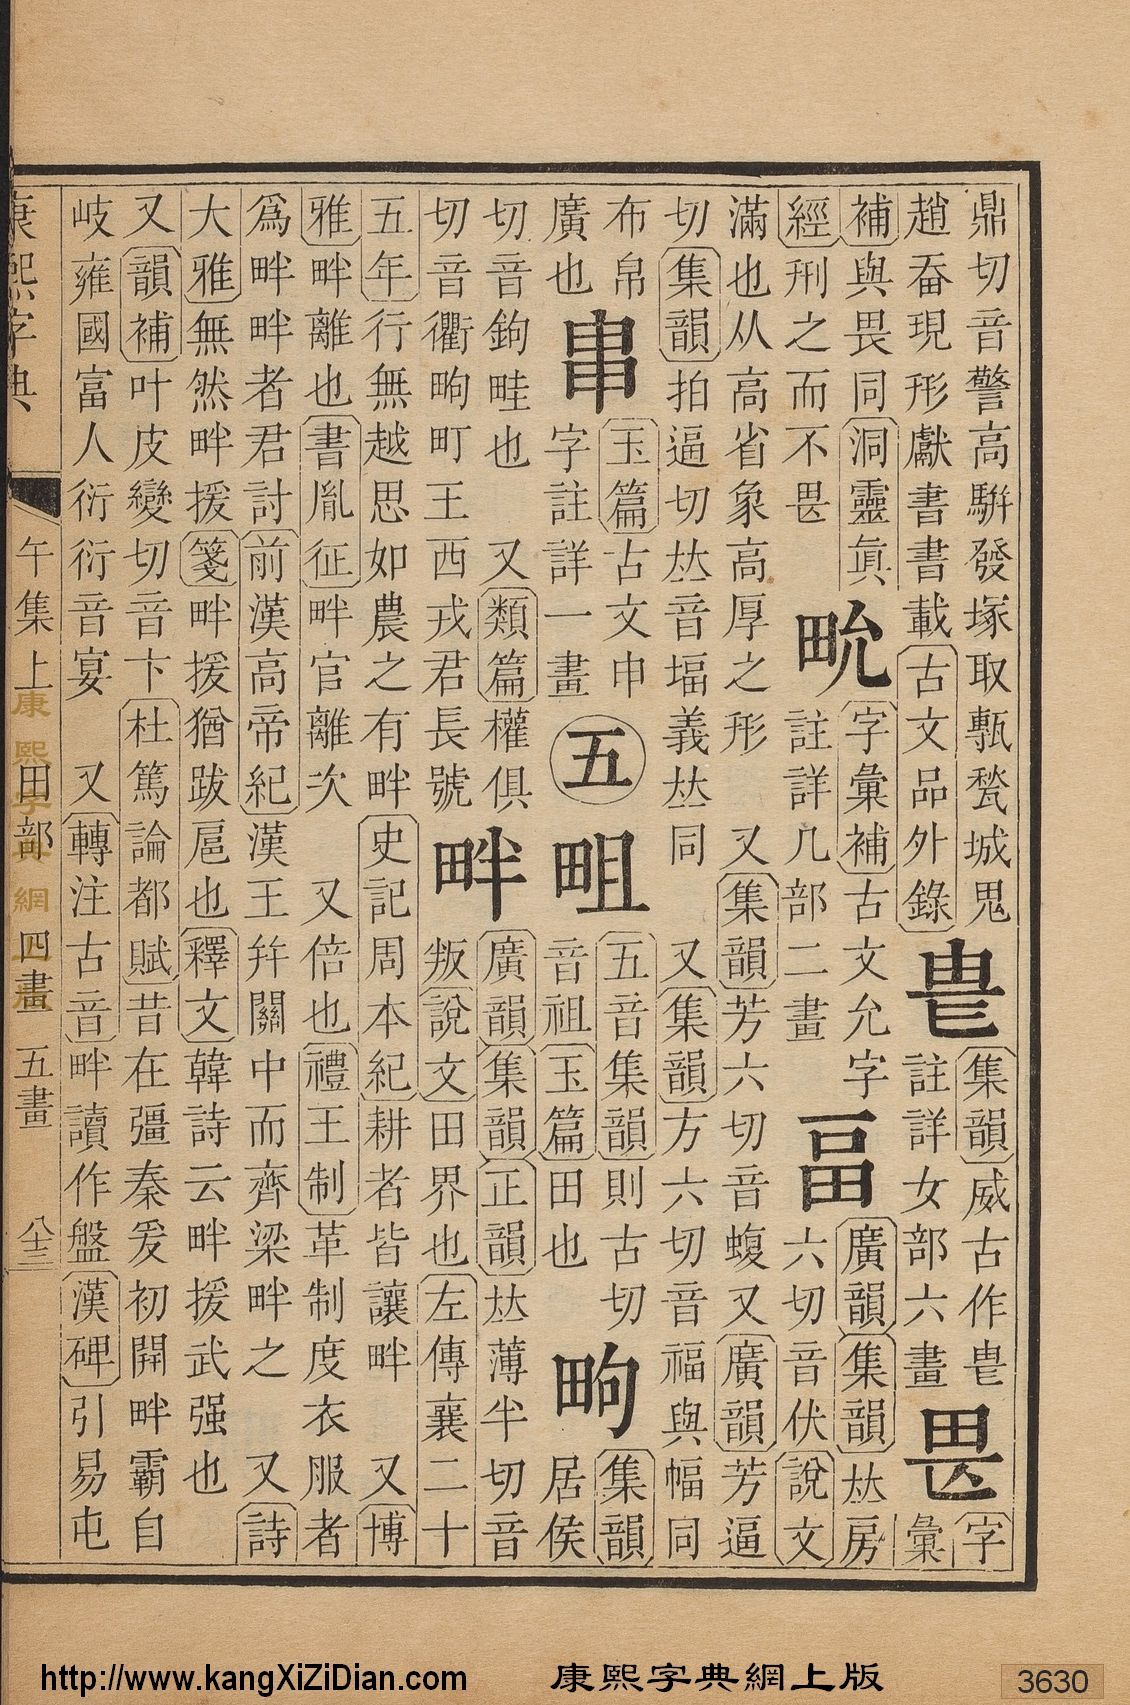 鼎切音警高駢發塚取甎甃城鬼
趙畚現形獻書書載古文品外錄
集韻威古作
註詳女部六畫
字
彙
補與畏同洞靈眞
經刑之而不畏
字彙補古文允字
註詳几部二畫
畐
廣韻集韻𠀤房
六切音伏說文
滿也从高省象高厚之形 又集韻芳六切音蝮又廣韻芳逼
切集韻拍逼切𠀤音堛義𠀤同 又集韻方六切音福與幅同
布帛
廣也
玉篇古文申
字註詳一畫
五
五音集韻則古切
音祖玉篇田也
畃
集韻
居侯
切音鉤畦也 又類篇權俱
切音衢畃町王西戎君長號
畔
廣韻集韻正韻𠀤薄半切音
叛說文田界也左傳襄二十
五年行無越思如農之有畔史記周本紀耕者皆讓畔 又博
雅畔離也書胤征畔官離次 又倍也禮王制革制度衣服者
爲畔畔者君討前漢高帝紀漢王幷關中而齊梁畔之 又詩
大雅無然畔援箋畔援猶跋扈也釋文韓詩云畔援武强也
又韻補叶皮變切音卞杜篤論都賦昔在彊秦爰初開畔霸自
岐雍國富人衍衍音宴 又轉注古音畔讀作盤漢碑引易屯
康熙字典 午集上 田部 四畫 五畫 八十三
康熙字典網
http://www.kangXiZiDian.com
康熙字典網上版
3630